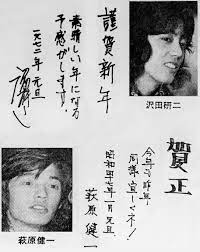 謹賀新年
素晴しい年になる
予感がします!!
一九七二年 元旦
沢田研二
賀正
今年も昨年
同様宜しくネ!
昭和四七年一月元旦
萩原健一
萩原健一